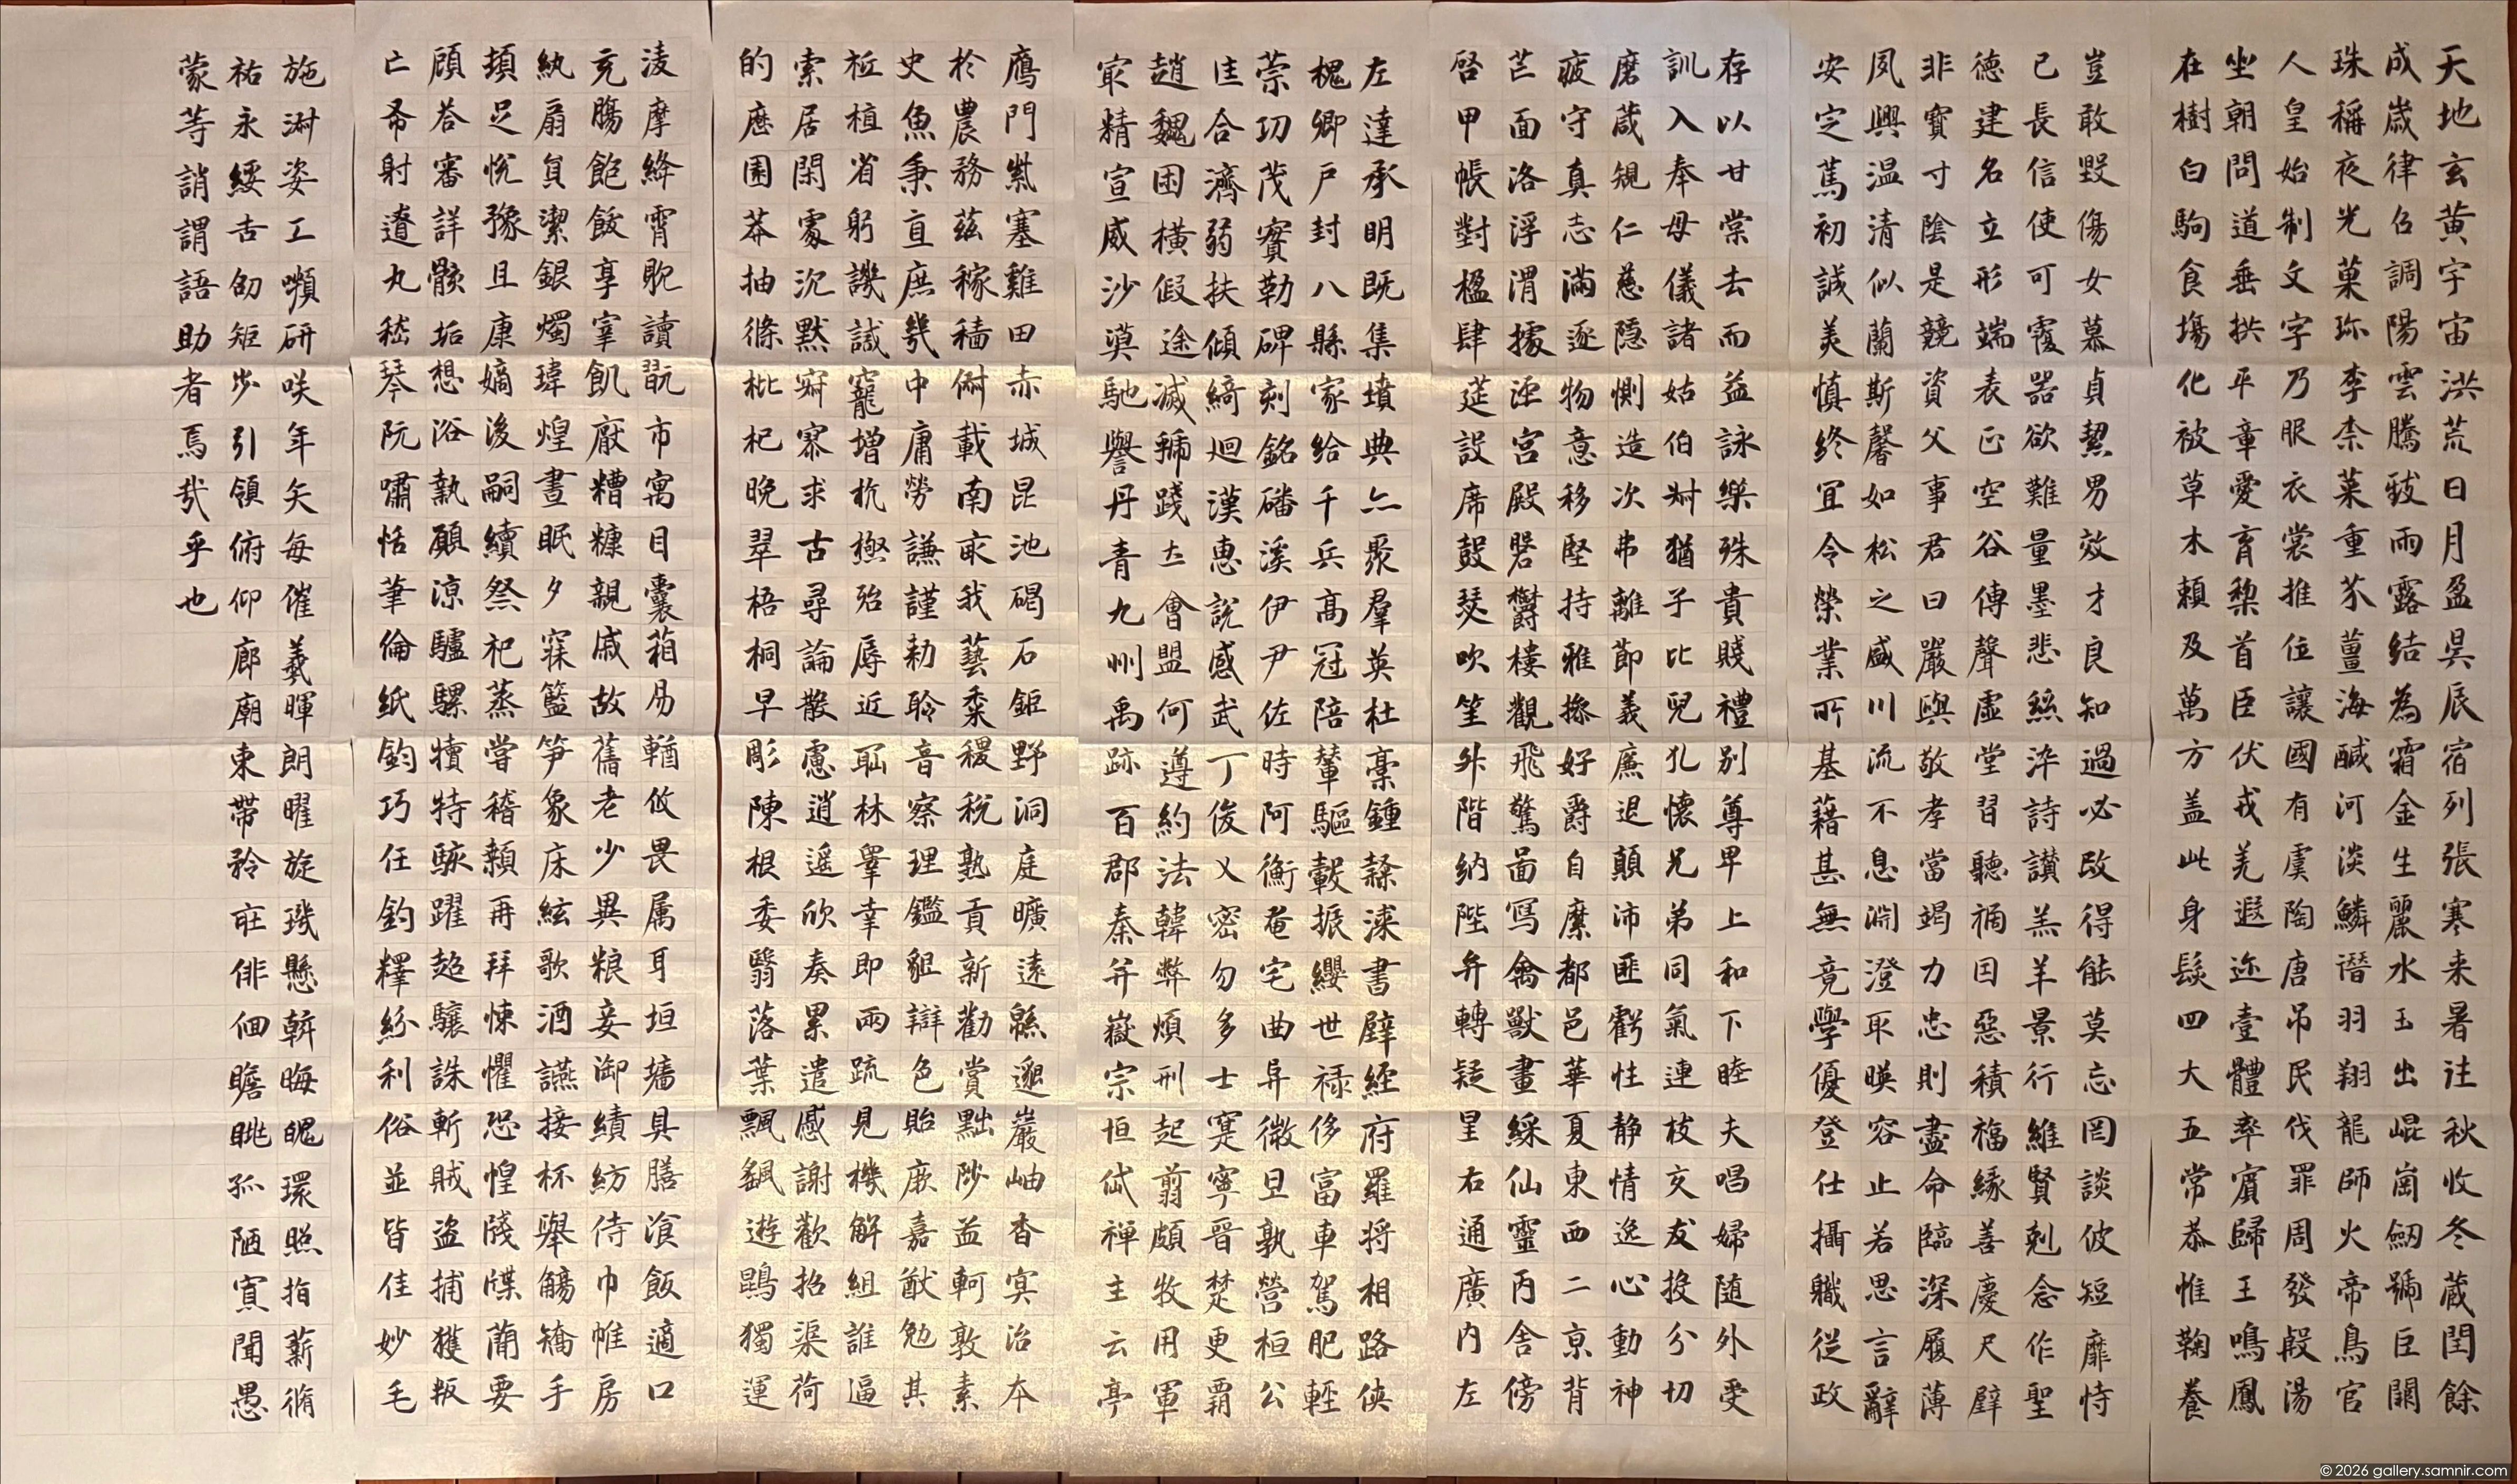 天地玄黄宇宙洪荒日月盈昃辰宿列張寒来暑往秋收冬蔵閏餘
成歳律吕調陽雲騰致雨露結為霜金生麗水玉出崐崗劒號巨闕
珠稱夜光菓珎李柰菜重芥薑海醎河淡鱗潛羽翔龍師火帝鳥官
人皇始制文字乃服衣裳推位讓國有虞陶唐吊民伐罪周發殷湯
坐朝問道垂拱平章愛育黎首臣伏戎羌遐迩壹體率賓歸王鳴鳳
在樹白駒食場化被草木賴及萬方盖此身髮四大五常恭惟鞠養
豈敢毀傷女慕貞絜男效才良知過必改得能莫忘罔談彼短靡恃
己長信使可覆器欲難量墨悲絲淬詩讃羔羊景行維賢剋念作聖
德建名立形端表正空谷傳聲虛堂習聽禍因惡積福縁善慶尺璧
非寶寸陰是競資父事君曰嚴與敬孝當竭力忠則盡命臨深履薄
夙興温清似蘭斯馨如松之盛川流不息淵澄取暎容止若思言辭
安定篤初誠美慎終宜令榮業所基藉甚無竟學優登仕攝職從政
存以甘棠去而益詠樂殊貴賤禮別尊卑上和下睦夫唱婦随外受
訓入奉母儀諸姑伯叔猶子比兒孔懷兄弟同氣連枝交友投分切
磨葴規仁慈隠惻造次弗離節義廉退顛沛匪虧性静情逸心動神
疲守真志滿逐物意移堅持雅操好爵自縻都邑華夏東西二京背
芒面洛浮渭據涇宮殿磐鬱樓觀飛驚啚寫禽獸畫綵仙靈丙舍傍
啓甲帳對楹肆筵設席鼓瑟吹笙升階納陛弁轉疑星右通廣内左
左達承明既集墳典亦聚羣英杜稾鍾隸漆書壁經府羅将相路侠
槐卿戸封八縣家給千兵高冠陪輦驅轂振纓世禄侈富車駕肥輕
策功茂實勒碑刻銘磻溪伊尹佐時阿衡奄宅曲阜微旦孰營桓公
匡合濟弱扶傾綺廻漢惠説感武丁俊乂密勿多士寔寧晉楚更霸
趙魏困橫假途滅虢踐土會盟何遵約法韓弊煩刑起翦頗牧用軍
最精宣威沙漠馳譽丹青九州禹跡百郡秦并嶽宗恒岱禅主云亭
鴈門紫塞雞田赤城昆池碣石鉅野洞庭曠遠緜邈巖岫杳冥治本
於農務兹稼穡俶載南畝我藝黍稷税熟貢新勸賞黜陟益軻敦素
史魚秉直庶幾中庸勞謙謹勑聆音察理鑑貌辯色貽厥嘉猷勉其
祗植省躬譏誡寵增抗極殆辱近恥林皋幸即兩疏見機解組誰逼
索居閑處沉默寂寥求古尋論散慮逍遥欣奏累遣慼謝歡招渠荷
的歷園莽抽條枇杷晚翠梧桐早彫陳根委翳落葉飄颻遊鵾獨運
淩摩絳霄耽讀翫市寓目囊箱易輶攸畏属耳垣墻具膳飡飯適口
充腸飽飫享宰飢厭糟糠親戚故舊老少異粮妾御績紡侍巾帷房
紈扇員潔銀燭瑋煌晝眠夕寐籃笋象床絃歌酒讌接杯舉觴矯手
頓足悅豫且康嫡後嗣續祭祀蒸嘗稽顙再拜悚懼恐惶牋牒簡要
顧荅審詳骸垢想浴執願涼驢騾犢特駭躍超驤誅斬賊盜捕獲叛
亡布射遼丸嵇琴阮嘯恬筆倫紙鈞巧任釣釋紛利俗並皆佳妙毛
施淑姿工嚬研咲年矢每催羲暉朗曜旋璣懸斡晦魄環照指薪脩
祜永綏吉劭矩步引領俯仰廊廟束帶矜莊俳佪瞻眺孤陋寡聞愚
蒙等誚謂語助者焉哉乎也
© 2026 gallery.samnir.com